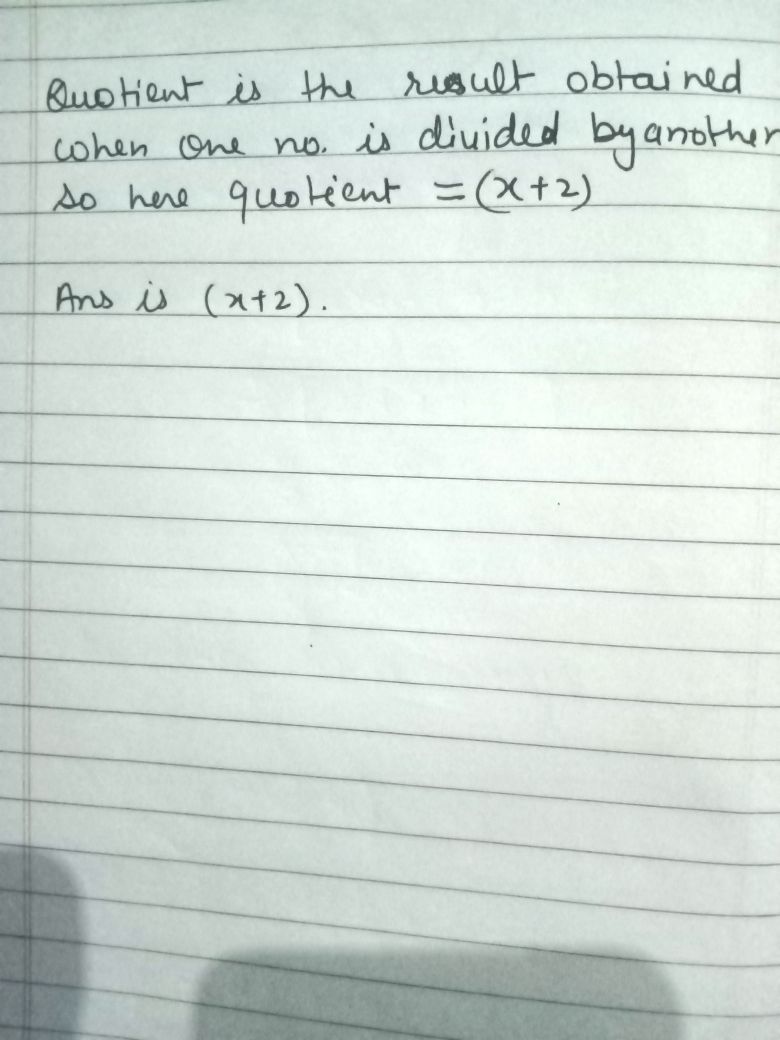 Quotient is the result obtained
when one no. is divided by another
so here quotient = (x+2)
Ans is (x+2).